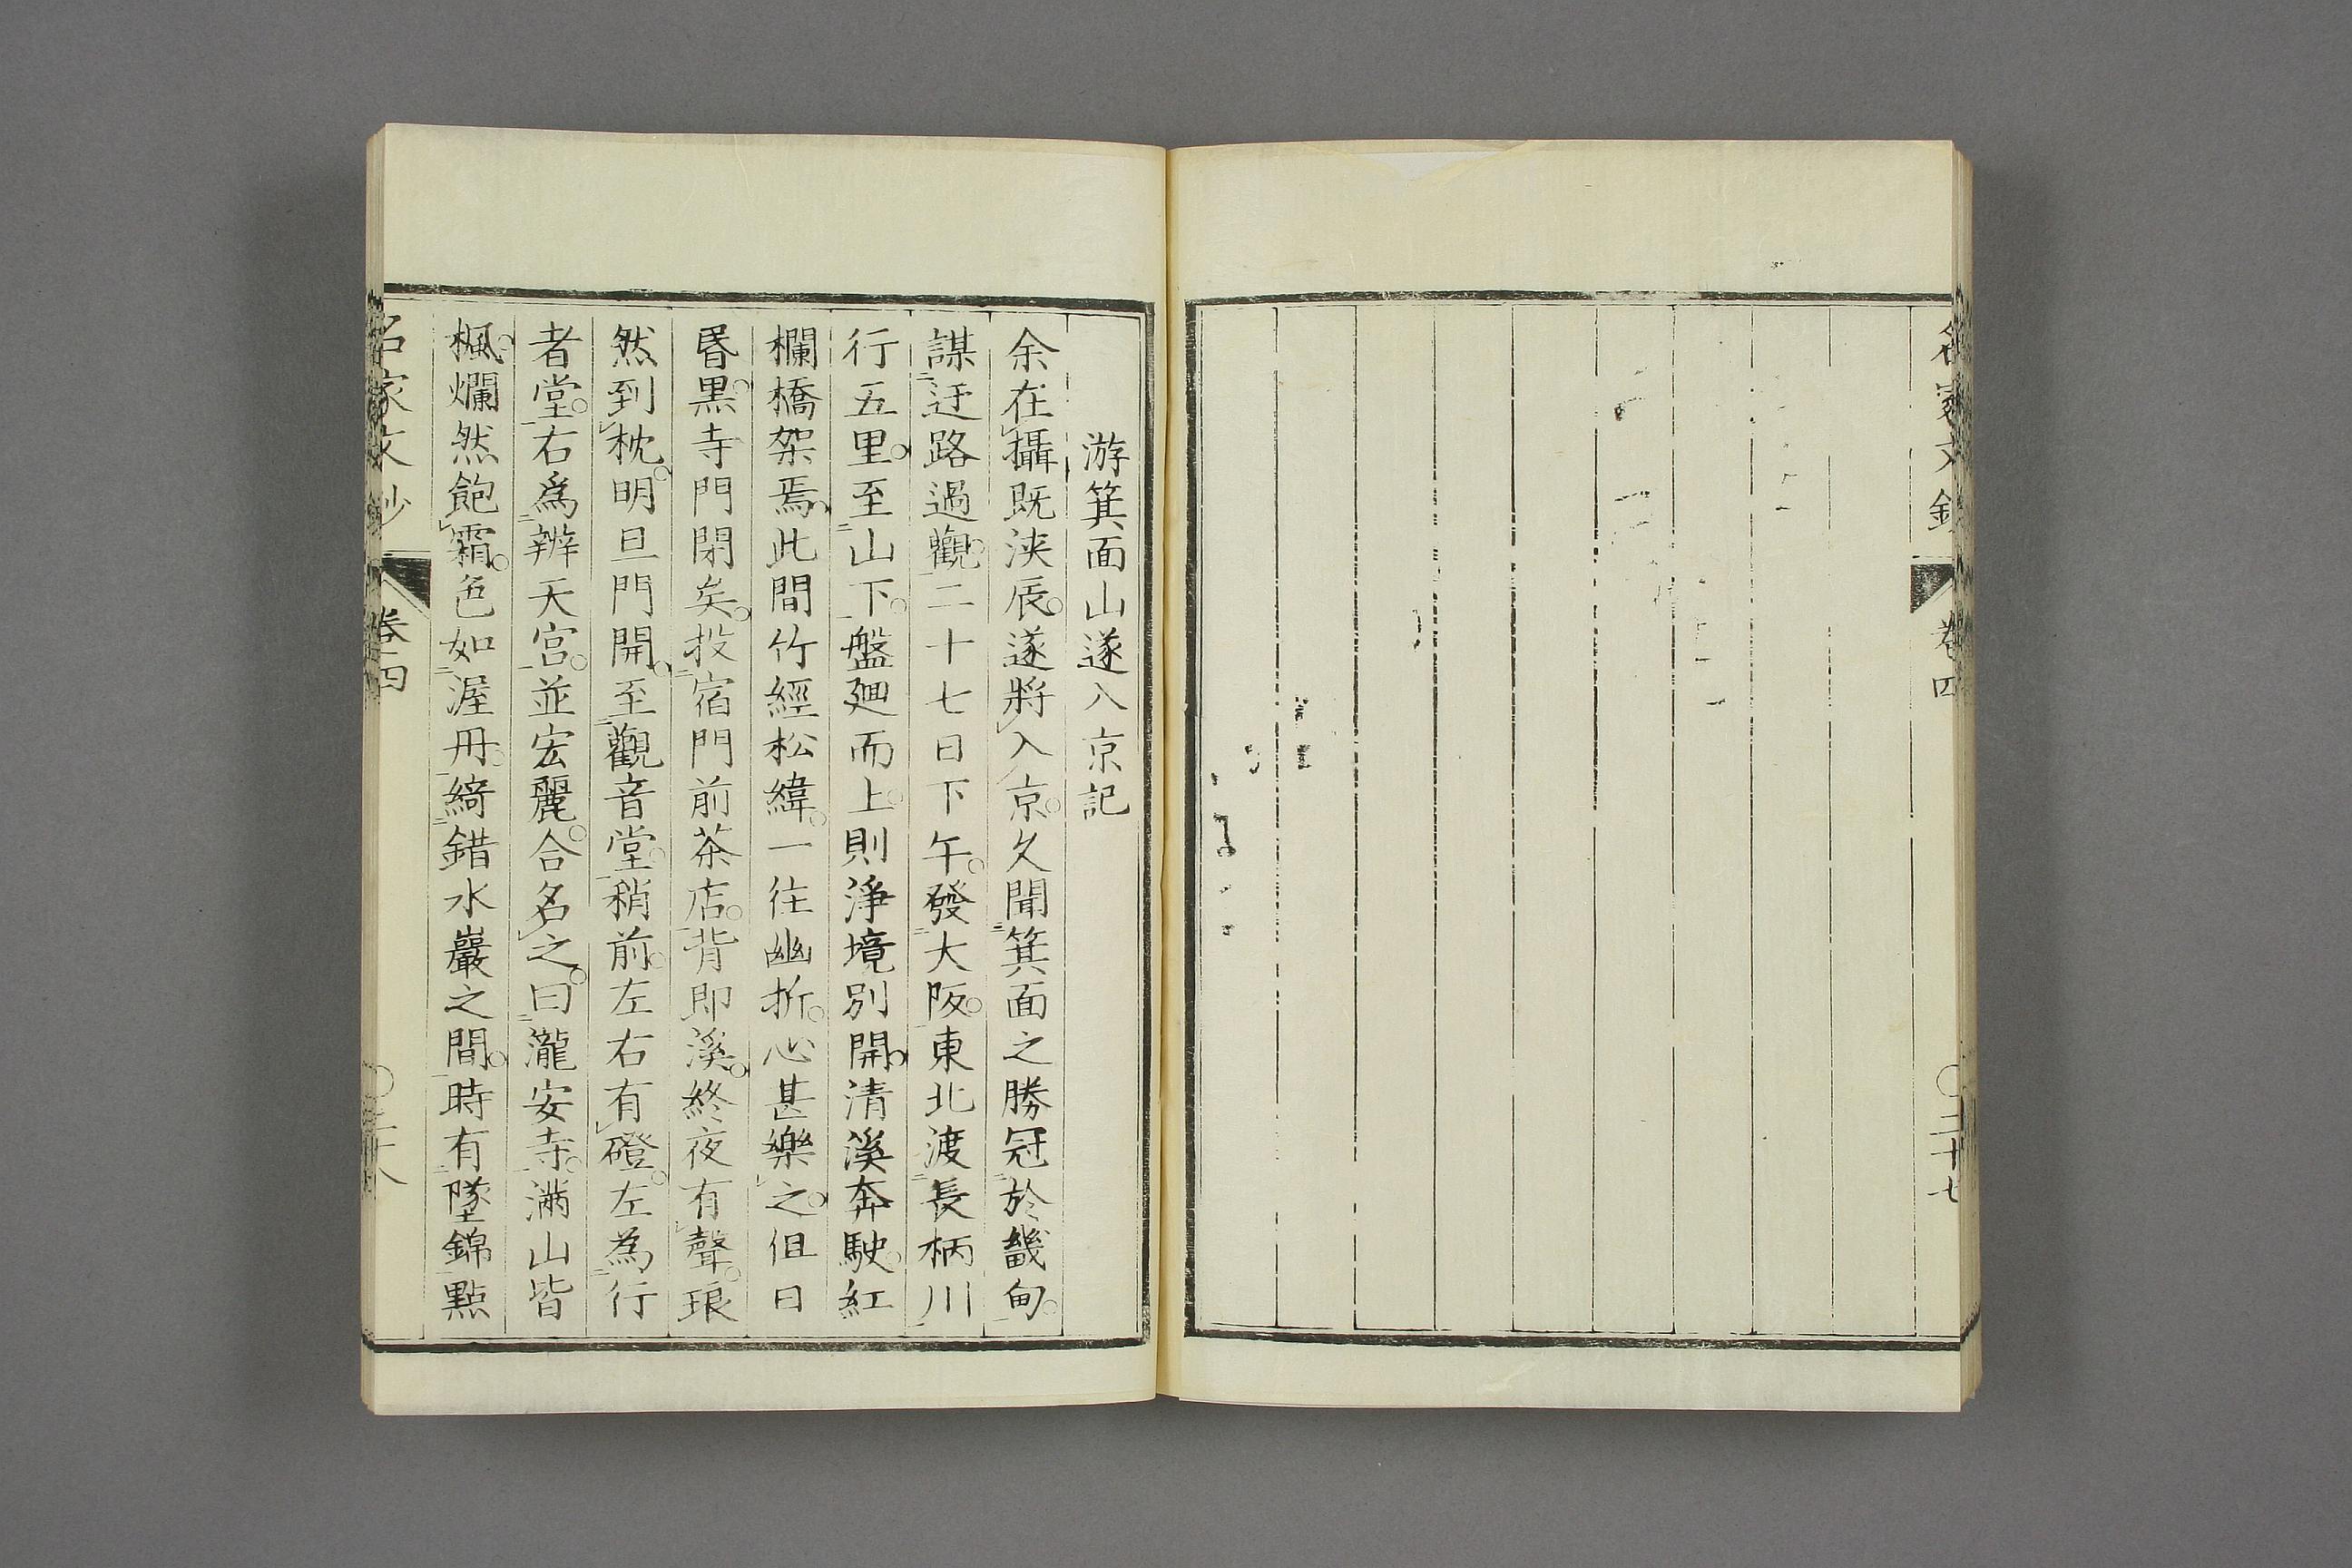 名家文鈔
卷四
二十七
游箕面山遂入京記
余在攝既浹辰。遂將入京。久聞箕面之勝冠於畿甸。
謀迂路過觀。二十七日下午。發大阪。東北渡長柄川
行五里。至山下。盤廻而上。則淨境別開。清溪奔駛。紅
欄橋架焉。此間竹經松緯。一往幽折。心甚樂之。但日
昏黑。寺門閉矣。投宿門前茶店。背即溪。終夜有聲。琅
然到枕。明旦門開。至觀音堂。稍前。左右有磴。左為行
者堂。右爲辨天宮。並宏麗。合名之。曰瀧安寺。滿山皆
楓。爛然飽霜。色如渥丹。綺錯水巖之間。時有墜錦點
名家文鈔
卷四
二十八